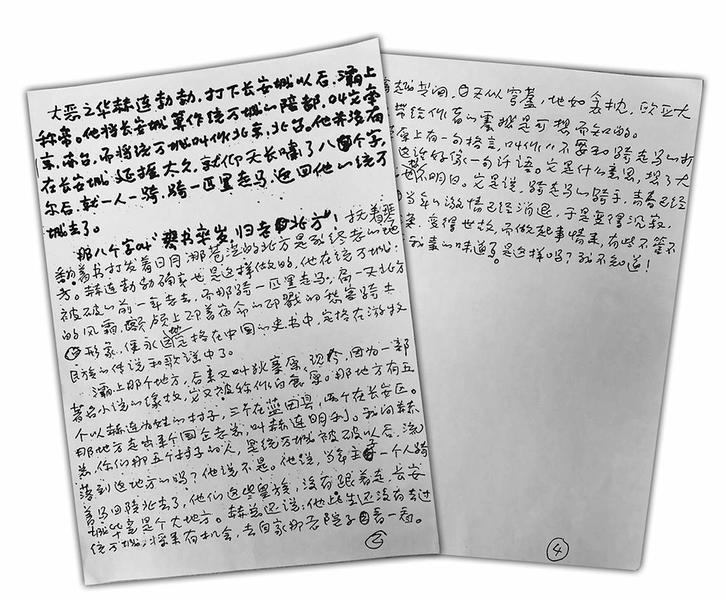 大恶之华赫连勃勃，打下长安城以后，灞上
称帝。他将长安城算作统万城的陪都，叫它南
京、南台，而将统万城叫作北京、北台。他并没有
在长安城延握太久，就仰天长啸了八个字，
尔后，就一人一骑，骑一匹黑走马，返回他的统万
城去了。
那八个字叫"琴书卒岁归老北方"！抚着琴
翻着书打发着日月，那苍茫的北方是我终老的地
方。赫连勃勃确实也是这样做的，他在统万城
被破的前一年老去。而那骑一匹黑走马，肩一天北方
的风霜，额颅上印着宿命的印戳的黑骑士
形象，便永远地定格在中国的史书中，定格在游牧
民族的传说和歌谣中了。
灞上那个地方，后来又叫狄寨原，现今，因为一部
著名小说的缘故，它又被称作白鹿原。那地方有五
个以赫连为姓的村子，三个在蓝田县，两个在长安区。
那地方走出来个国企老总，叫赫连明利。我问赫
总，你们那五个村子的人，是统万城被破以后，流
落到这地方的吗？他说不是。他说，当年主子一个人骑
着马回陕北去了，他们这些皇族，没有跟着走，长安
城毕竟是个大地方。赫总还说，他这生还没有去过
统万城，将来有机会，去自家那老院子看一看。
②
天似穹庐，地如衾枕，欧亚大
带给你的寒气是可想而知的。
原上有一句格言，叫作"不要和骑走马的打
这话好像一句讦语。它是什么意思，想了大
也不明白。它是说，骑走马的骑手，青春已经
当年的激情已经消退，于是变得沉寂，
变得世故，不做惹事情来，有些不管不
我事的味道了。是这样吗？我不知道！
④